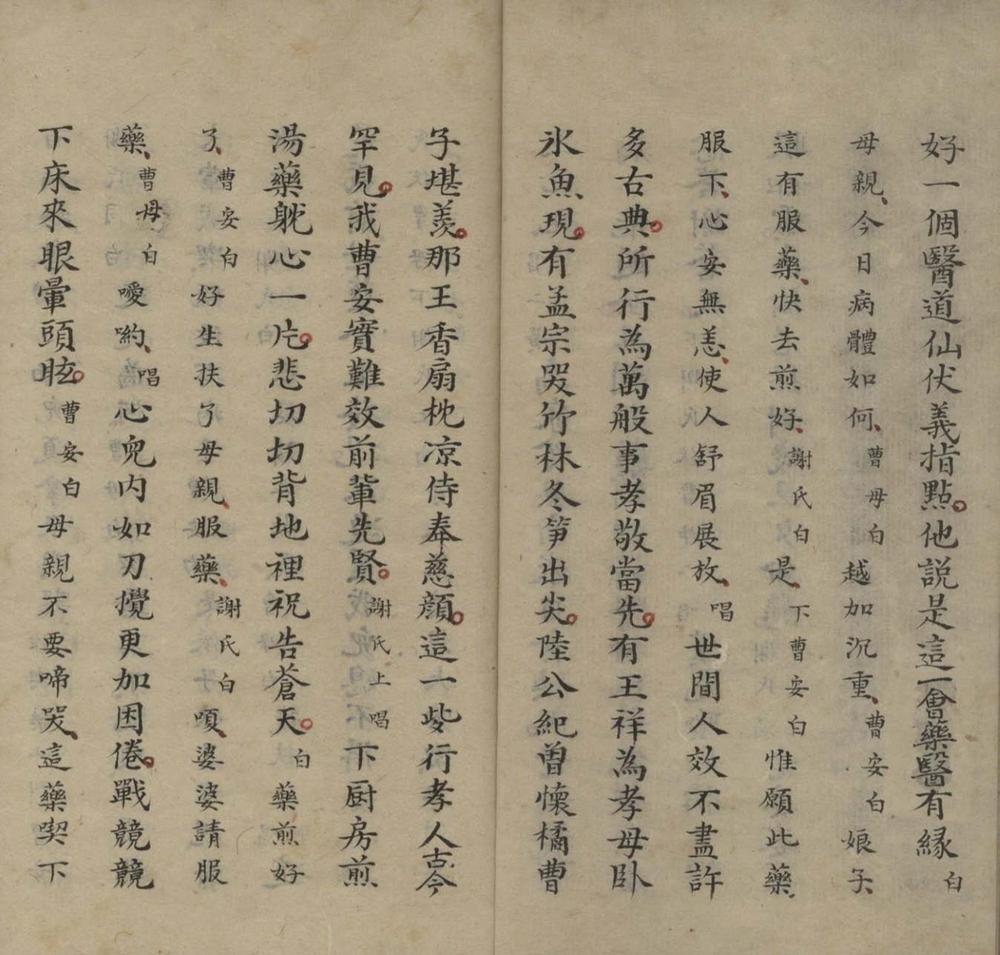 好一個醫道仙伏義指點。他説是這一會藥醫有緣白
母親、今日病體如何、曹母白越加沉重、曹安白娘子、
這有服藥、快去煎好、謝氏白是、下曹安白惟願此藥、
服下、心安無恙、使人舒眉展放、唱世間人效不盡許
多古典。所行為萬般事孝敬當先。有王祥為孝母卧
氷魚現。有孟宗哭竹林冬笋出尖。陸公紀曾懷橘曹
子堪羡。那王香扇枕凉侍奉慈顔。這一㱔行孝人古今
罕見。我曹安實難效前輩先賢。謝氏上唱下厨房煎
湯藥躭心一片。悲切切背地裡祝告蒼天。白藥煎好
了、曹安白好生扶了母親、服藥、謝氏白嗄、婆婆請服
藥、曹母白噯喲、唱心兒内如刀攪更加困倦。戰競競
下床來眼暈頭眩。曹安白母親不要啼哭、這藥喫下